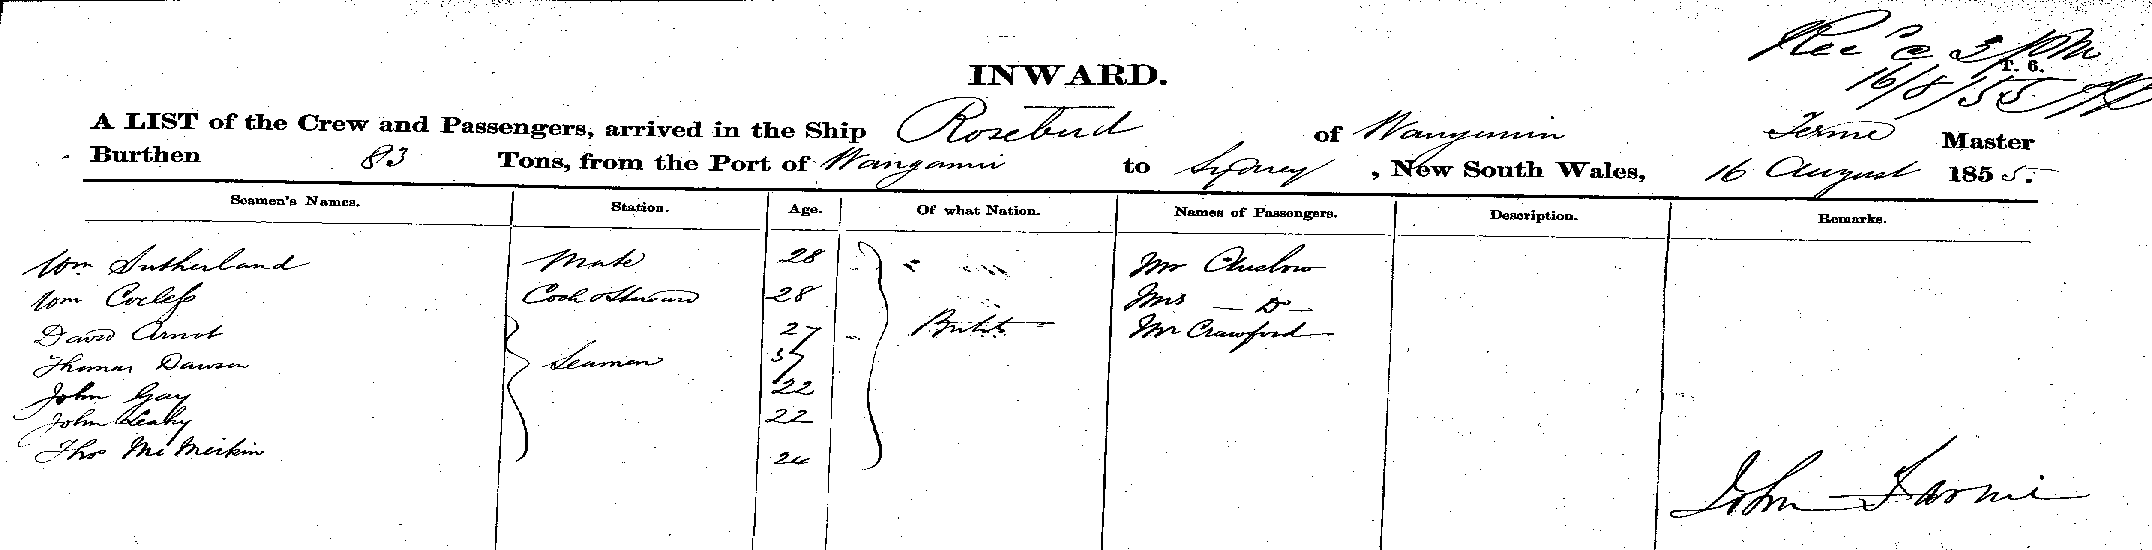 Rec'd @ 3 pm
T. 6.
16/8/55
INWARD.
A LIST of the Crew and Passengers, arrived in the Ship Rosebud of Wangamin Master
Burthen 83 Tons, from the Port of Wangamin to Sydney, New South Wales, 16 August 1855.
Seamen's Names. Station. Age. Of what Nation. Names of Passengers. Description. Remarks.
Wm Sutherland Mate 28 Mr
Wm Mrs — Do —
28 Cook & Steward
David Arnot 27 British Mr Crawford
Thomas Dawson Seamen
John Gay 22
John Leahy 22
Thos McMeikin 24
John